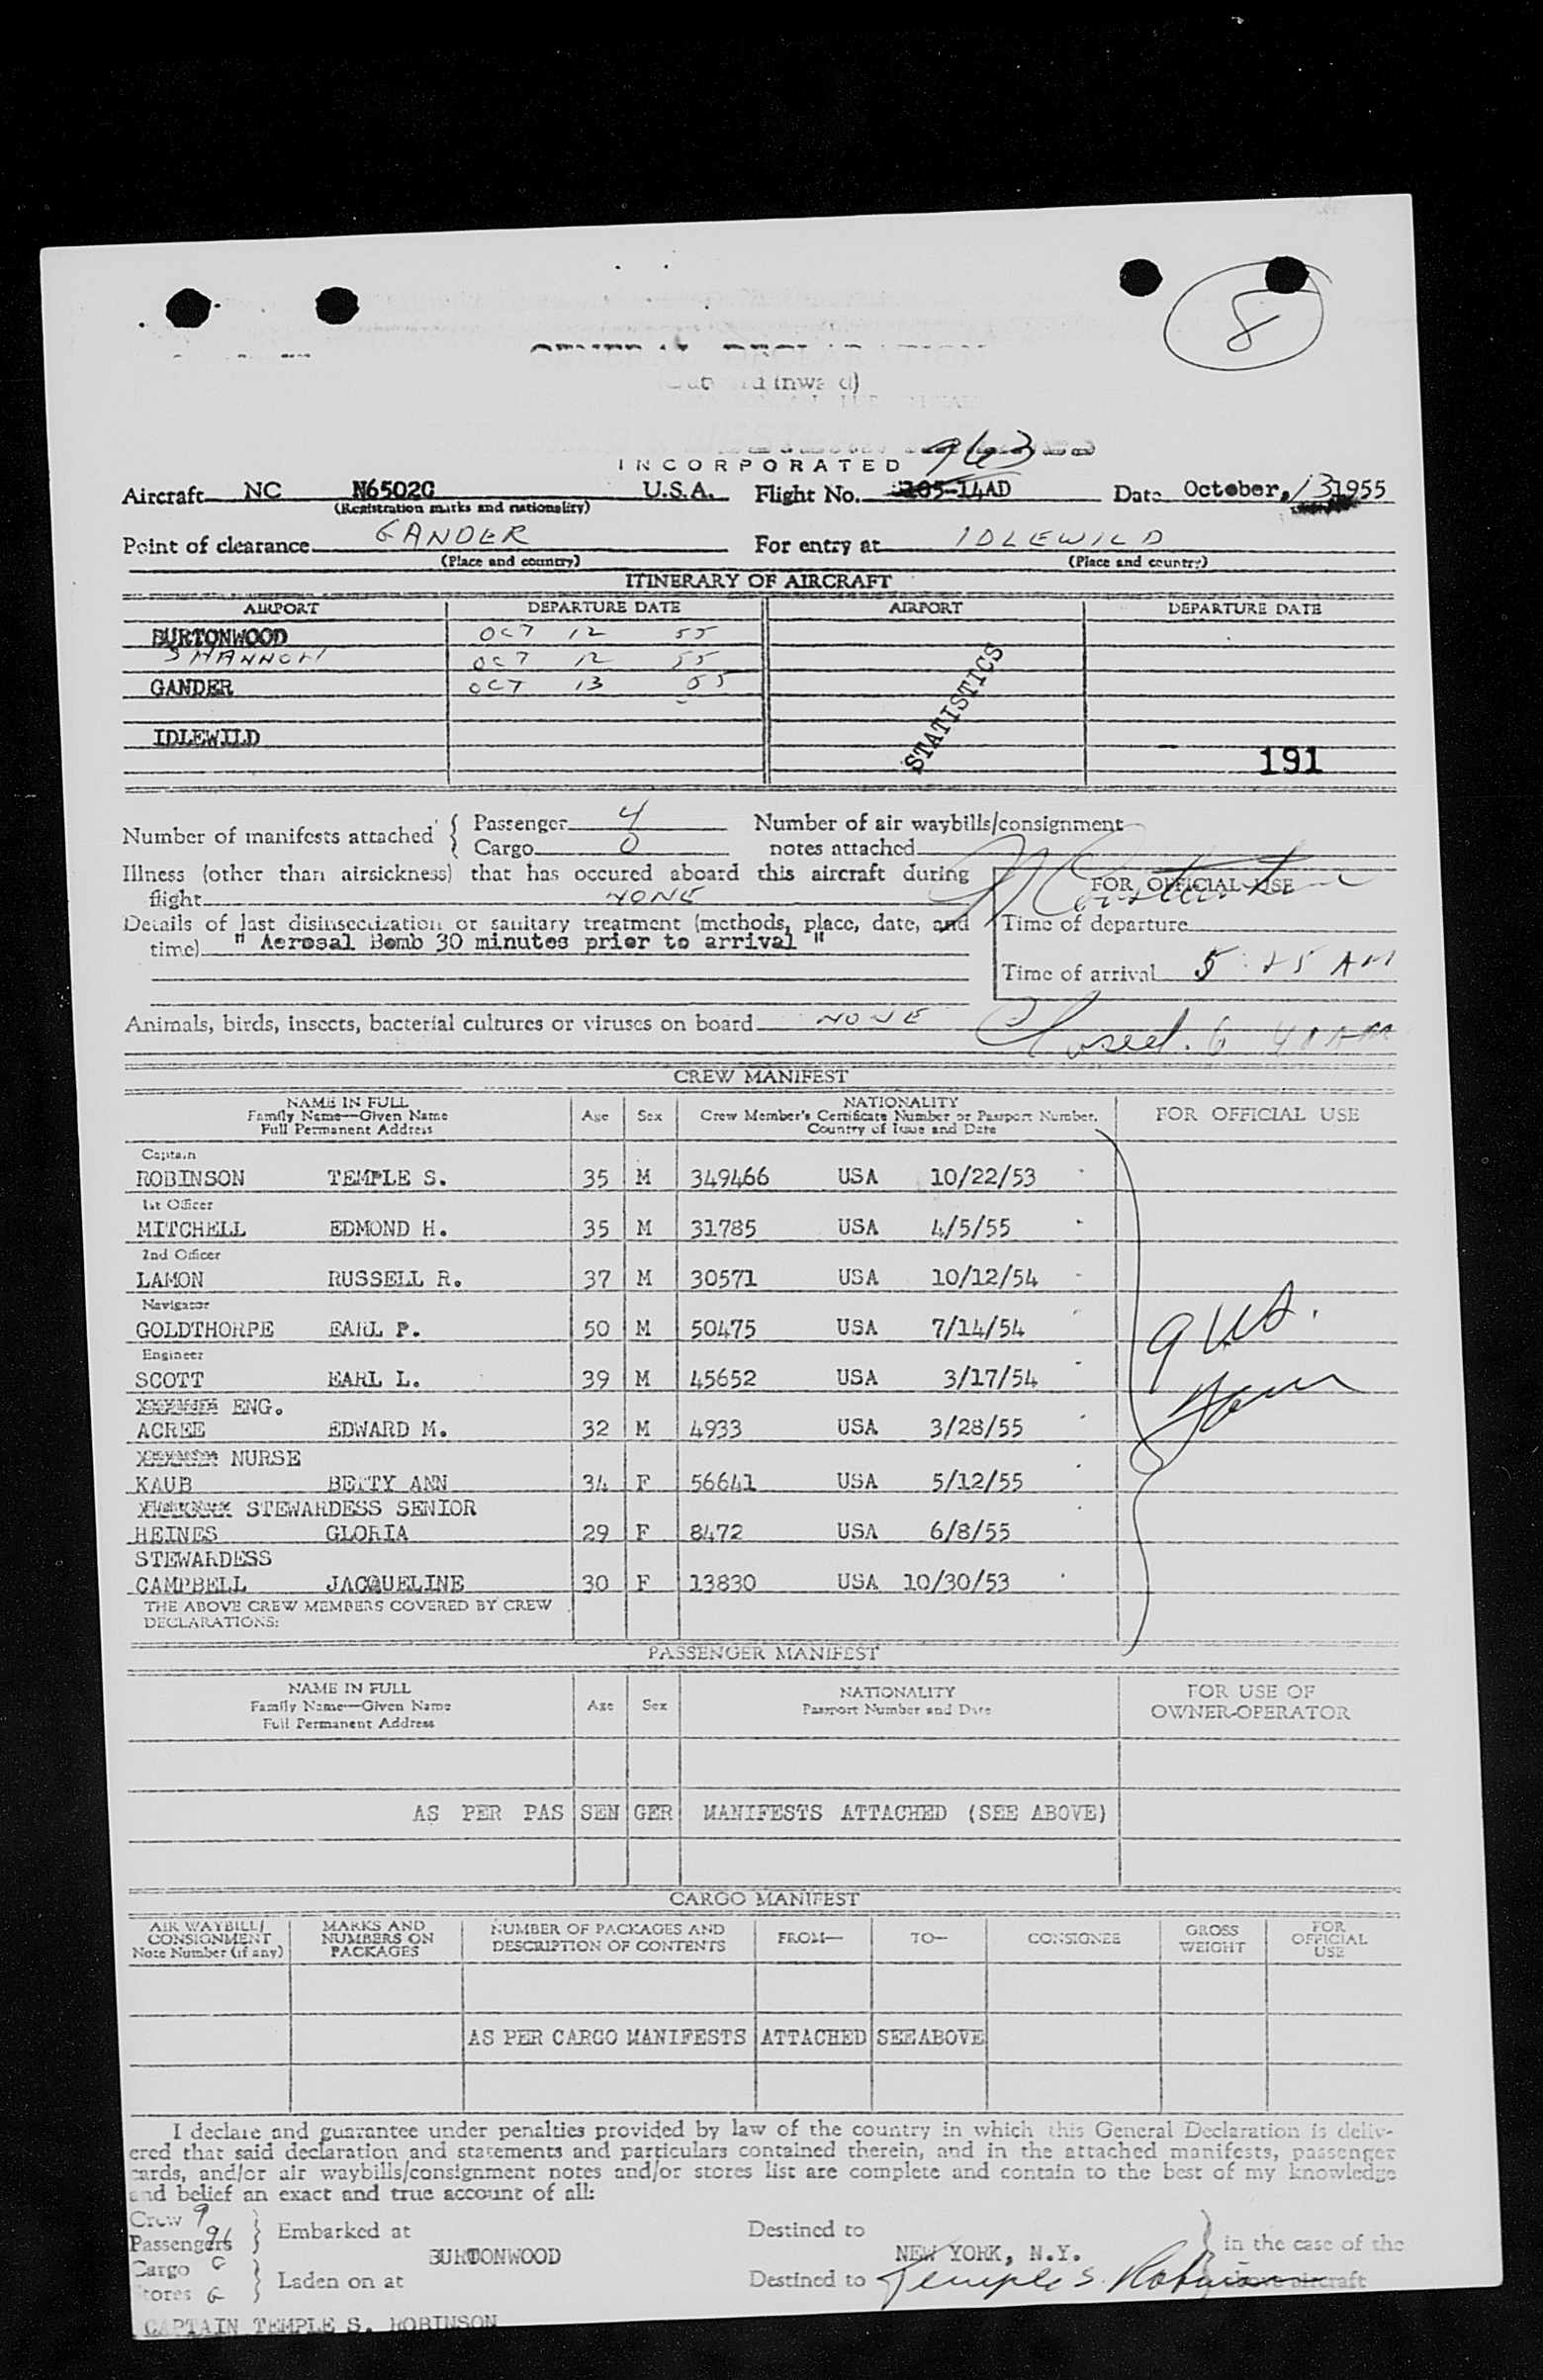 8
INCORPORATED 963
Aircraft NC N6502C U.S.A. Flight No. 105-14AD Date October, 13 1955
(Registration marks and nationality)
Point of clearance GANDER For entry at IDLEWILD
(Place and country) (Place and country)
ITINERARY OF AIRCRAFT
AIRPORT DEPARTURE DATE AIRPORT DEPARTURE DATE
BURTONWOOD OCT 12 55
SHANNON OCT 12 55
GANDER OCT 13 55
STATISTICS
IDLEWILD
191
Number of manifests attached { Passenger 4 Number of air waybills/consignment
Cargo 0 notes attached
Illness (other than airsickness) that has occured aboard this aircraft during
flight NONE
FOR OFFICIAL USE
Details of last disinsectization or sanitary treatment (methods, place, date, and
time) " Aerosal Bomb 30 minutes prior to arrival "
Time of departure
Time of arrival 5:25 AM
Animals, birds, insects, bacterial cultures or viruses on board NONE
Closed. 6 40 AM
CREW MANIFEST
NAME IN FULL
Family Name—Given Name
Full Permanent Address
Age Sex
NATIONALITY
Crew Member's Certificate Number or Passport Number.
Country of Issue and Date
FOR OFFICIAL USE
Captain
ROBINSON TEMPLE S. 35 M 349466 USA 10/22/53
1st Officer
MITCHELL EDMOND H. 35 M 31785 USA 4/5/55
2nd Officer
LAMON RUSSELL R. 37 M 30571 USA 10/12/54
Navigator
GOLDTHORPE EARL P. 50 M 50475 USA 7/14/54
Engineer
SCOTT EARL L. 39 M 45652 USA 3/17/54
ENG.
ACREE EDWARD M. 32 M 4933 USA 3/28/55
NURSE
KAUB BETTY ANN 34 F 56641 USA 5/12/55
STEWARDESS SENIOR
HEINES GLORIA 29 F 8472 USA 6/8/55
STEWARDESS
CAMPBELL JACQUELINE 30 F 13830 USA 10/30/53
THE ABOVE CREW MEMBERS COVERED BY CREW
DECLARATIONS:
9 US.
PASSENGER MANIFEST
NAME IN FULL
Family Name—Given Name
Full Permanent Address
Age Sex
NATIONALITY
Passport Number and Date
FOR USE OF
OWNER-OPERATOR
AS PER PAS SEN GER MANIFESTS ATTACHED (SEE ABOVE)
CARGO MANIFEST
AIR WAYBILL/
CONSIGNMENT
Note Number (if any)
MARKS AND
NUMBERS ON
PACKAGES
NUMBER OF PACKAGES AND
DESCRIPTION OF CONTENTS
FROM—
TO—
CONSIGNEE
GROSS
WEIGHT
FOR
OFFICIAL
USE
AS PER CARGO MANIFESTS ATTACHED SEE ABOVE
I declare and guarantee under penalties provided by law of the country in which this General Declaration is deliv-
ered that said declaration and statements and particulars contained therein, and in the attached manifests, passenger
cards, and/or air waybills/consignment notes and/or stores list are complete and contain to the best of my knowledge
and belief an exact and true account of all:
Crew 9
Passengers 96 } Embarked at Destined to
BURTONWOOD NEW YORK, N.Y. } in the case of the
Cargo
Stores } Laden on at Destined to Temple S. Robinson above aircraft
CAPTAIN TEMPLE S. ROBINSON